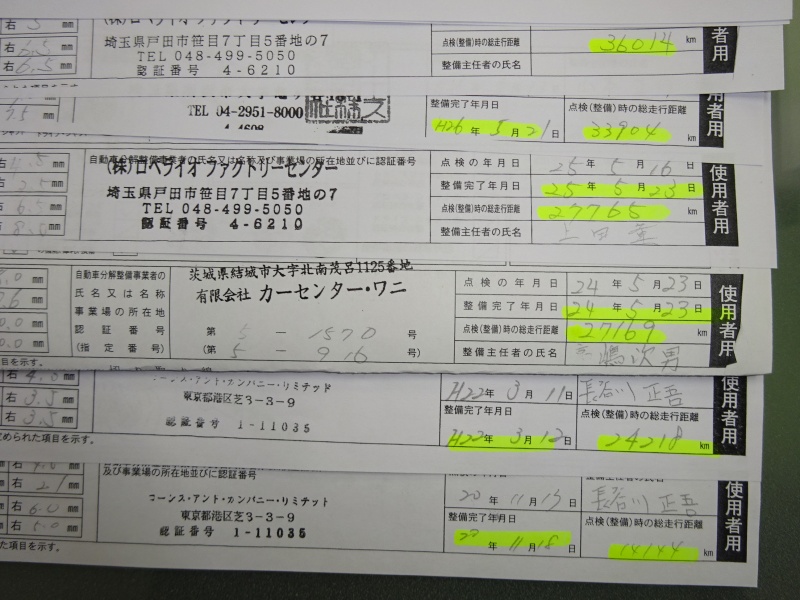 右 5
右 6.5 mm
右 6.5 mm
埼玉県戸田市笹目7丁目5番地の7
TEL 048-499-5050
認証番号 4-6210
点検(整備)時の総走行距離
36014 km
整備主任者の氏名
者用
7.5 mm
TEL 04-2951-8000
整備完了年月日
H26 年 5 月 21 日
点検(整備)時の総走行距離
33904 km
者用
右 4.5 mm
右 2.5 mm
右 6.5 mm
右 8.5 mm
自動車分解整備事業者の氏名又は名称及び事業場の所在地並びに認証番号
(株)ロペライオ ファクトリーセンター
埼玉県戸田市笹目7丁目5番地の7
TEL 048-499-5050
認証番号 4-6210
点検の年月日
25 年 5 月 16 日
整備完了年月日
25 年 5 月 23 日
点検(整備)時の総走行距離
27765 km
整備主任者の氏名
使用者用
自動車分解整備事業者の
氏名又は名称
事業場の所在地
認証番号
(指定番号)
茨城県結城市大字北南茂呂1125番地
有限会社 カーセンター・ワニ
第 5 - 1570 号
(第 5 - 916 号)
点検の年月日
24 年 5 月 23 日
整備完了年月日
24 年 5 月 23 日
点検(整備)時の総走行距離
27169 km
整備主任者の氏名
嶋次男
使用者用
目を示す。
右 4.0 mm
右 3.5 mm
右 3.5 mm
められた項目を示す。
コーンズ・アンド・カンパニー・リミテッド
東京都港区芝3-3-9
認証番号 1-11035
H22年 3月 11日
長谷川 正吾
整備完了年月日
H22年 3月 12日
点検(整備)時の総走行距離
24218 km
使用者用
右 6.0 mm
右 5.0 mm
た項目を示す。
及び事業場の所在地並びに認証番号
コーンズ・アンド・カンパニー・リミテッド
東京都港区芝3-3-9
認証番号 1-11035
長谷川 正吾
整備完了年月日
20 年 11月 18日
点検(整備)時の総走行距離
14144 km
使用者用